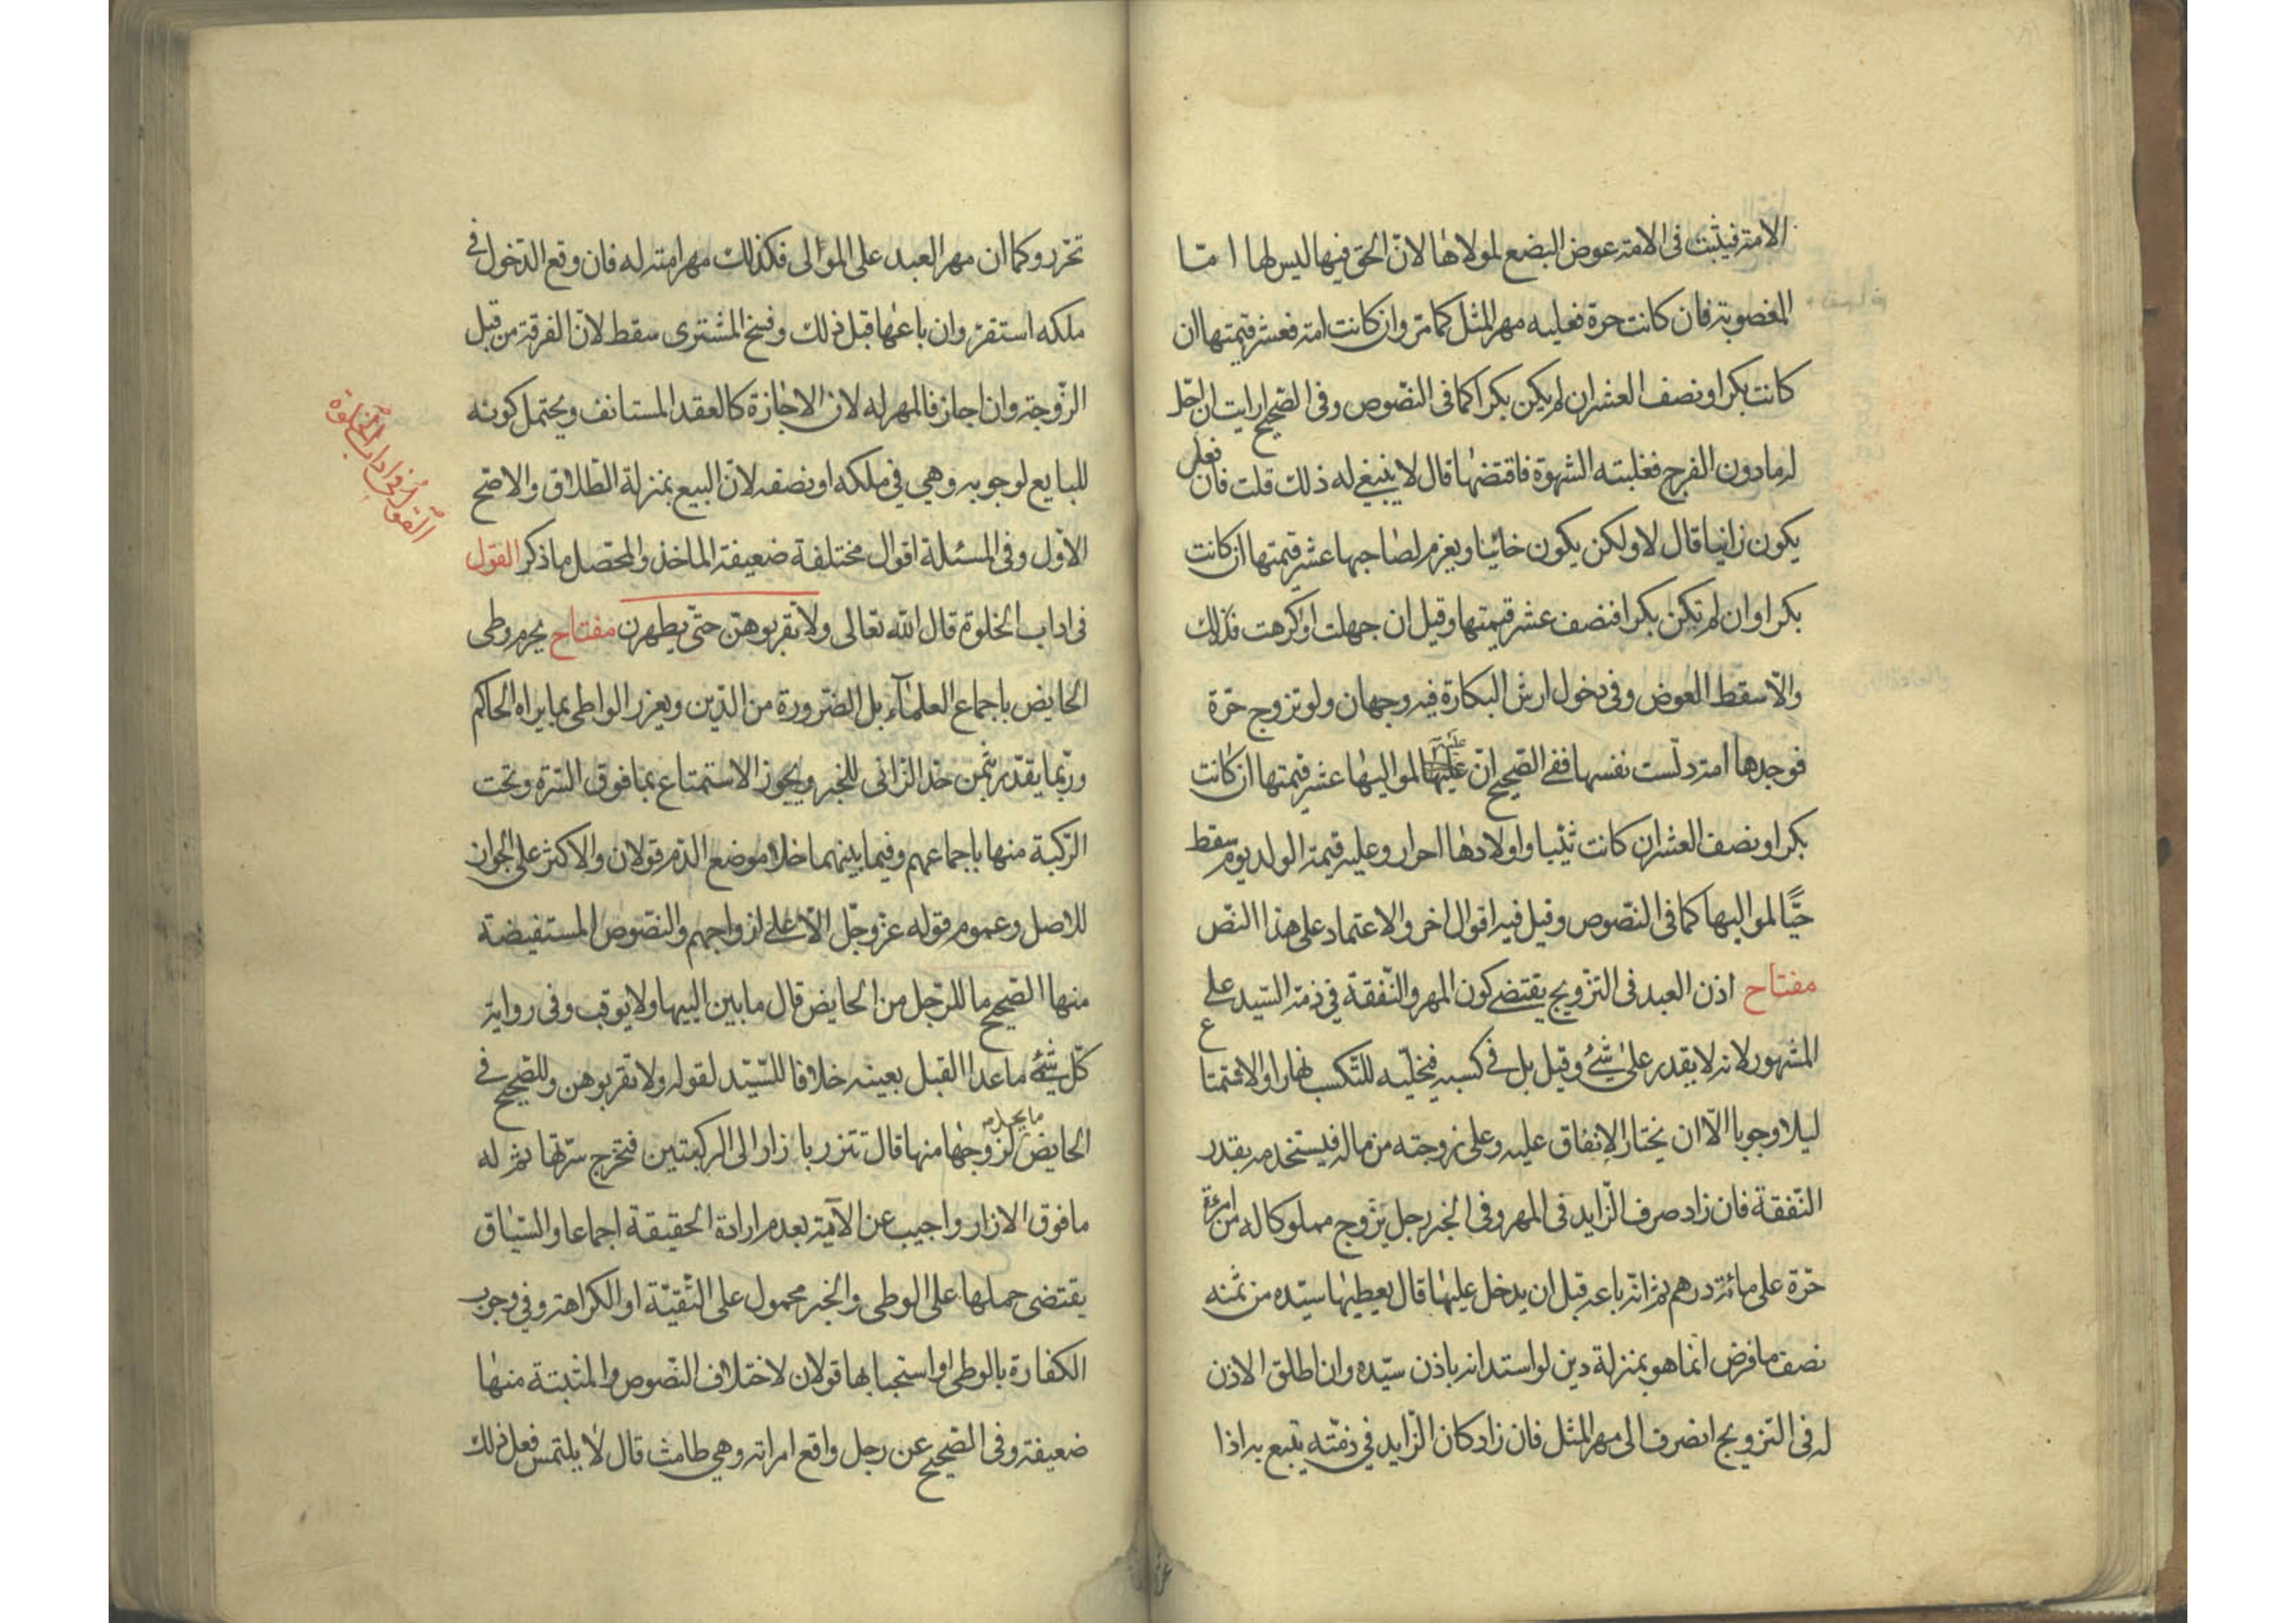 الامة فيثبت فى الامة عوض البضع لمولاها لانّ الحق فيها ليس لها امّا
المغصوبة فان كانت حرة فعليه مهر المثل كما مرّ وان كانت امة فعشر قيمتها ان
كانت بكرا ونصف العشر ان لم يكن بكرا كما فى النّصوص وفى الصّحيح ارايت ان احلّ
له ما دون الفرج فغلبته الشهوة فاقتضها قال لا ينبغى له ذلك قلت فان فعل
يكون زانيا قال لا ولكن يكون خائنا ويغرم لصاحبها عشر قيمتها ان كانت
بكرا وان لم تكن بكرا فنصف عشر قيمتها وقيل ان جهلت او اكرهت فكذلك
والّا سقط العوض وفى دخول ارش البكارة فيه وجهان ولو تزوج حرّة
فوجدها امة دلّست نفسها ففى الصّحيح انّ عليه لمواليها عشر قيمتها ان كانت
بكرا ونصف العشر ان كانت ثيّبا واولادها احرار وعليه قيمة الولد يوم سقط
حيّا لمواليها كما فى النّصوص وقيل فيه اقوال اخر والاعتماد على هذا النّص
مفتاح اذن العبد فى التزويج يقتضى كون المهر والنّفقة فى ذمة السّيد على
المشهور لانه لا يقدر على شئ وقيل بل فى كسبه فيخلّيه للتّكسب نهارا والاستمتاع
ليلا وجوبا الّا ان يختار الانفاق عليه وعلى زوجته من ماله فيستخدمه بقدر
النّفقة فان زاد صرف الزّايد فى المهر وفى الخبر رجل يزوج مملوكا له من امرئة
حرّة على مائة درهم ثم انّه باعه قبل ان يدخل عليها قال يعطيها سيّده من ثمنه
نصف ما فرض انّما هو بمنزلة دين لو استدانه باذن سيّده وان اطلق الاذن
له فى التزويج انصرف الى مهر المثل فان زاد كان الزّايد فى ذمّته يتبع به اذا
تحرّر وكما ان مهر العبد على الموالى فكذلك مهر امته له فان وقع الدّخول فى
ملكه استقرّ وان باعها قبل ذلك وفسخ المشترى سقط لانّ الفرقة من قبل
الزّوجة وان اجاز فالمهر له لان الاجازة كالعقد المستانف ويحتمل كونه
للبايع لوجوبه وهى فى ملكه او نصفه لانّ البيع بمنزلة الطّلاق والاصح
الاوّل وفى المسئلة اقوال مختلفة ضعيفة الماخذ والمحصّل ما ذكر القول
فى اداب الخلوة قال الله تعالى ولا تقربوهنّ حتّى يطهرن مفتاح يحرم وطى
الحايض باجماع العلماء بل الضّرورة من الدّين ويعزر الواطى بما يراه الحاكم
وربّما يقدّر بثمن حدّ الزّانى للخبر ويجوز الاستمتاع بما فوق السّرة وتحت
الرّكبة منها باجماعهم وفيما بينهما خلا موضع الدّم قولان والاكثر على الجواز
للاصل وعموم قوله عزّ وجلّ الّا على ازواجهم والنّصوص المستفيضة
منها الصّحيح ما للرّجل من الحايض قال ما بين الييها ولا يوقب وفى رواية
كلّ شئ ما عدا القبل بعينه خلافا للسّيّد لقوله ولا تقربوهن وللصّحيح فى
الحايض ما يحل لزوجها منها قال تتزر بازار الى الركبتين فتخرج سرّتها ثم له
ما فوق الازار واجيب عن الآية بعدم ارادة الحقيقة اجماعا والسّياق
يقتضى حملها على الوطى والخبر محمول على التّقيّة او الكراهة وفى وجوب
الكفارة بالوطى او استحبابها قولان لاختلاف النّصوص والمثبتة منها
ضعيفة وفى الصّحيح عن رجل واقع امراته وهى طامث قال لا يلتمس فعل ذلك
القول فى اداب الخلوة